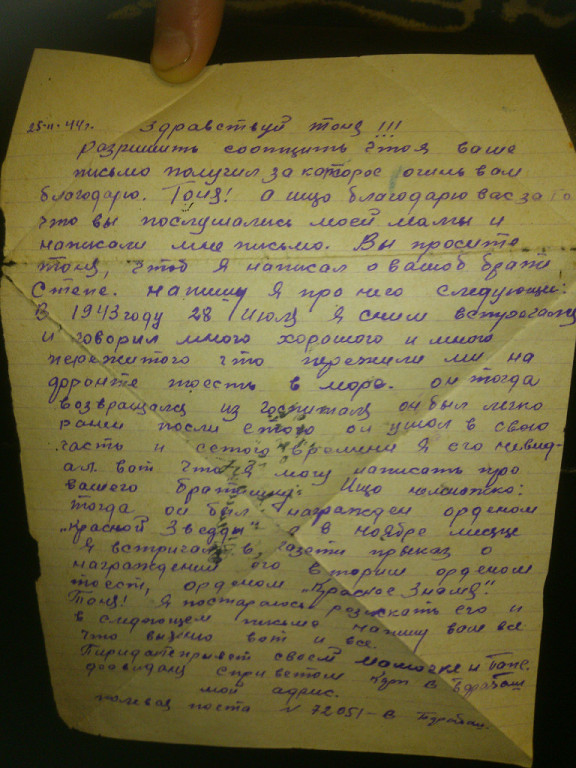 25-II-44г. Здравствуй Тоня!!!
Разришить сообщить что я ваше
письмо получил за каторое очинь вам
благодарю. Тоня! а ищо благодарю вас за
что вы послушались моей мамы и
написали мне письмо. Вы просите
Тоня, чтоб я написал о вашоб брати
Степе. Напишу я про него следующи:
В 1943 году 28 Июля я сним встречался
и говорил много хорошого и много
пережитого что пережили ми на
фронте тоесть в море. он тогда
возвращался из госпиталя он был легко
ранен после етого он ушол в свою
часть и сетого времени я его невид-
ал вот что я могу написать про
вашего братишку. Ищо
тогда он был награжден орденом
„Красной Звезды" а в ноябре месице
я встригал в газети приказ о
награждении его вторим орденом
тоест, орденом „Красное Знамя".
Тоня! Я постараюсь розискать его и
в следющем письме напишу вам все
что вот и все.
своей мамочке и Папе.
досвидания сприветом
мой адрес.
полевая поста N 72051-в